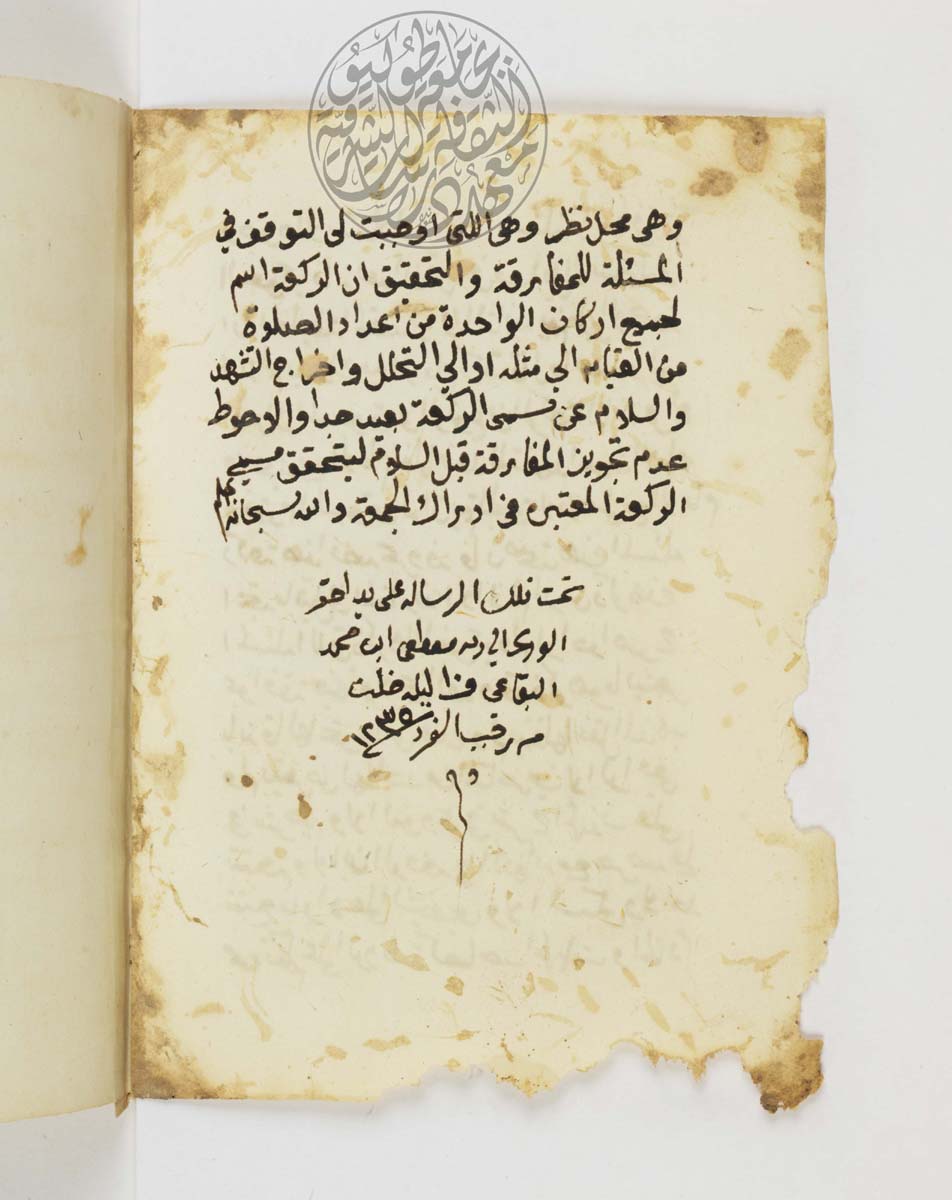 معهد دراسات الثقافة الشرقية بجامعة طوكيو
وهى محل نظر وهى اللتى اوجبت لى التوقف في
المسئلة للمفارقة والتحقيق ان الركعة اسم
لجميع اركان الواحدة من اعداد الصلوة
من القيام الي مثله او الي التحلل واخراج التشهد
والسلام عن مسمى الركعة بعيد جدا والاحوط
عدم تجويز المفارقة قبل السلام ليتحقق مسمى
الركعة المعتبره فى ادراك الجمعة والله سبحانه اعلم
تمت تلك الرساله على يد احقر
الورى مصطفى ابن محمد
البقاعى ليله خلت
من رجب الفرد ١٢٣٥